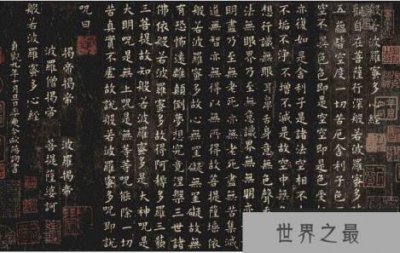 般若波羅蜜多心經
在菩薩行深般若波羅
五蘊皆空度一切苦厄舍利子色
空不異色色即是空空即是色
亦復如是舍利子是諸法空相
不垢不淨不增不減是故空中
想行識無眼耳鼻舌身意無色聲
無眼界乃至無意識界無無
明盡乃至無老死亦無老死盡無苦集滅
道無智亦無得以無所得故菩提薩埵依
般若波羅蜜多故心無罣礙無罣礙故無
有恐怖遠離顛倒夢想究竟涅槃三世諸
佛依般若波羅蜜多故得阿耨多羅三藐
三菩提故知般若波羅蜜多是大神呪是
大明呪是無上呪是無等等呪能除一切
苦真實不虛故說般若波羅蜜多呪即說
呪曰
揭帝揭帝 波羅揭帝
波羅僧揭帝 菩提薩婆訶
般若波羅蜜多心經
貞觀九年十月旦日率更令歐陽詢書
世界之最